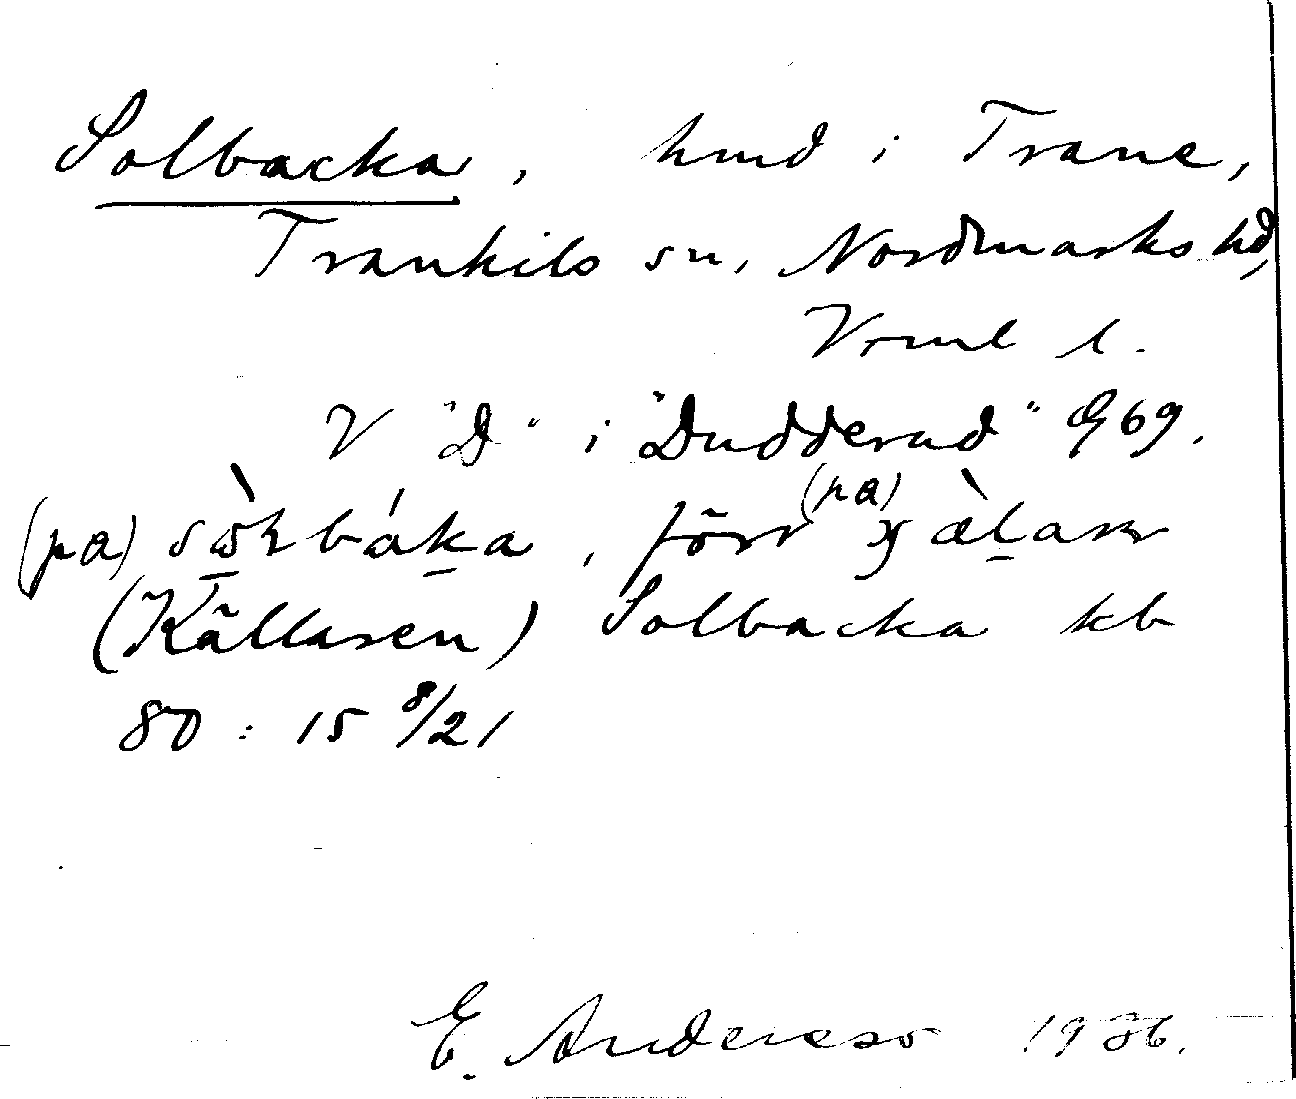 Solbacka, hmd i Trane,
Trankils sn, Nordmarks hd,
Vrml l.
V "D" i "Dudderud" G69.
(pa) sὼrbáka, förr (pa) 
(Källåsen) Solbacka kb
80:15 8/21
E. Anderesso 1936.